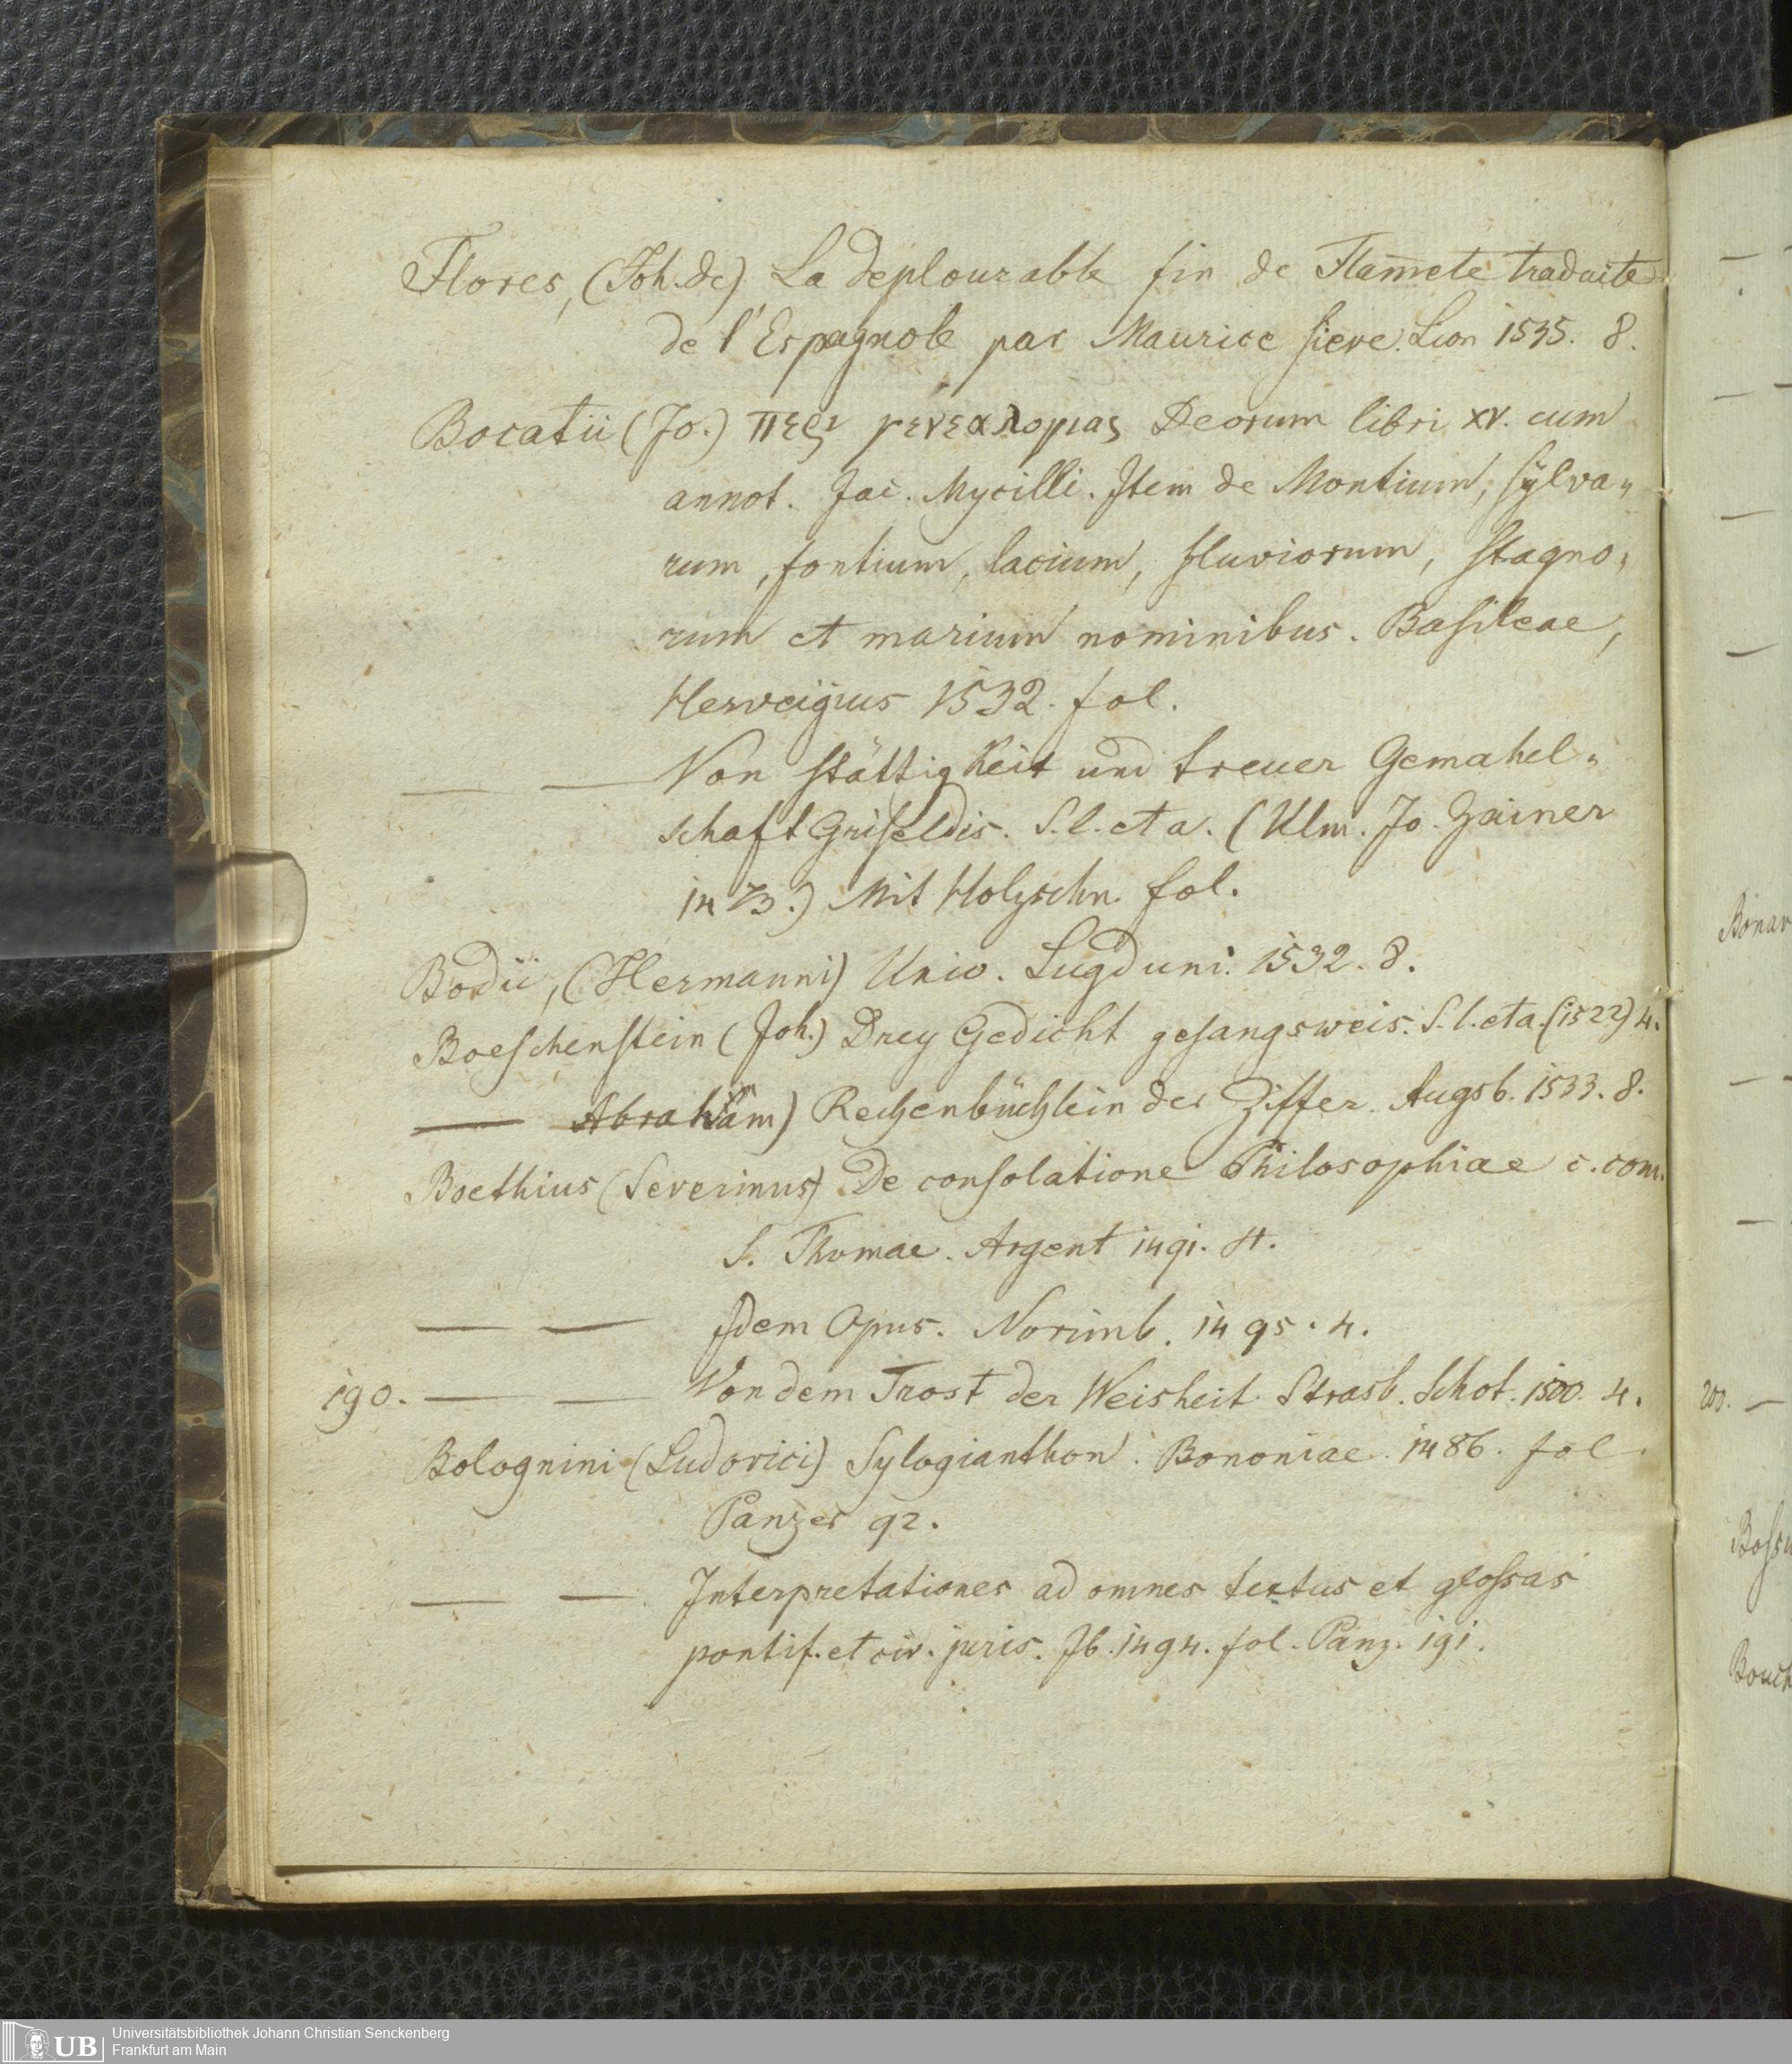 Flores, (Joh. de) La deplourable fin de Flam̅ete traduite
de l'Espagnole par Maurice sieve. Lion 1535. 8.
Bocatii (Jo.) περι γενεαλογιας Deorum libri XV. cum
annot. Jac. Mycilli. Item de Montium, sylva„
rum, fontium, lacium, fluviorum, stagno„
rum et marium nominibus. Basileae,
Hervagius 1532. fol.
— — Von stättigkeit und treuer Gemahel„
schaft Griseldis. S. l. et a. (Ulm. Jo. Zainer
1473.) Mit Holzschn. fol.
Bodii, (Hermanni) Unio. Lugduni. 1532. 8.
Boeschenstein (Joh.) Drey Gedicht gesangsweis. S. l. et a. (1522) 4.
— Abraham) Rechenbüchlein der Ziffer. Augsb. 1533. 8.
Boethius (Severinus) De consolatione Philosophiae c. com.
S. Thomae. Argent 1491. 4.
— — Idem Opus. Norimb. 1495. 4.
190. — — Von dem Trost der Weisheit. Strasb. Schot. 1500. 4.
Bolognini (Ludovici) Sylogianthon. Bononiae. 1486. fol
Panzer 92.
— — Interpretationes ad omnes textus et glossas
pontif. et civ. juris. Ib. 1494. fol. Panz. 191.
Bonav
200. —
Bouch
UB Universitätsbibliothek Johann Christian Senckenberg
Frankfurt am Main